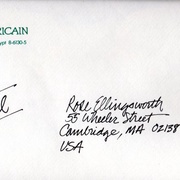 RICAIN
Rose Ellingsworth
55 Wheeler Street
Cambridge, MA 02138
USA